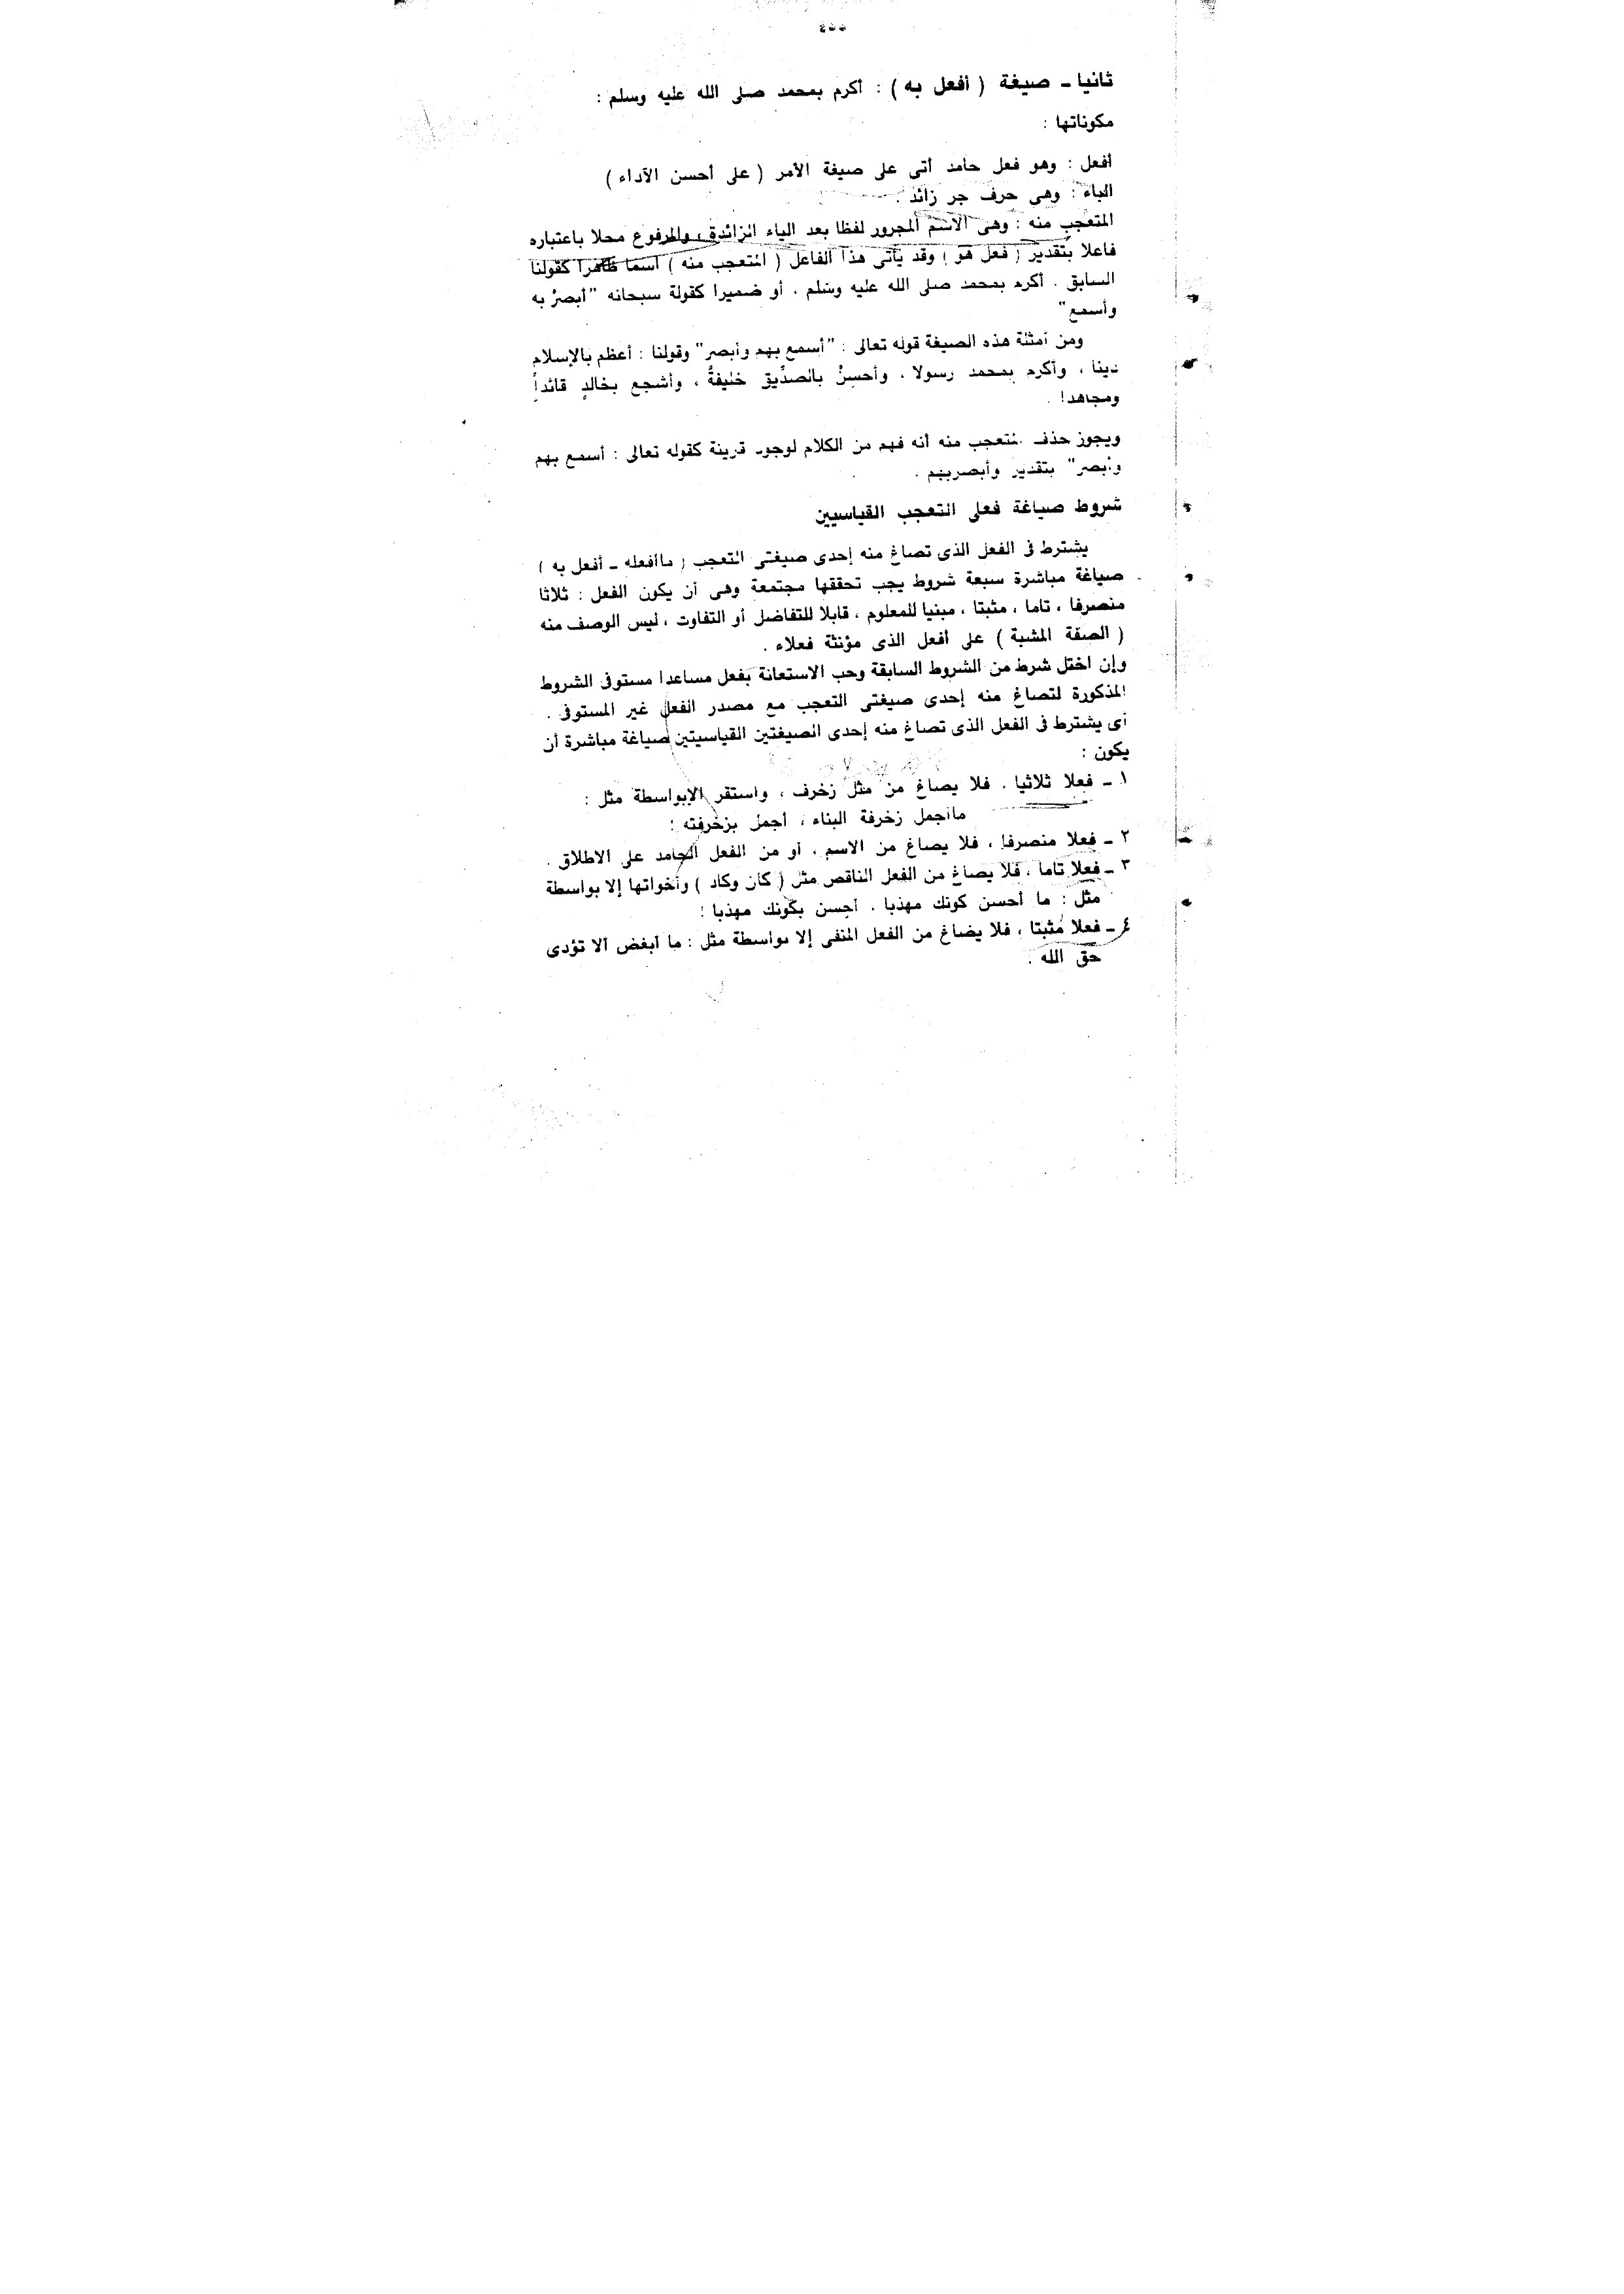 ثانيا ـ صيغة ( أفعل به ) : أكرم بمحمد صلى الله عليه وسلم :
مكوناتها :
أفعل : وهو فعل حامد أتى على صيغة الأمر ( على أحسن الآداء )
الباء : وهى حرف جر زائد .
المتعجب منه : وهى الاسم المجرور لفظا بعد الياء الزائدة ، والمرفوع محلا باعتباره
فاعلا بتقدير ( فعل هو ) وقد يأتى هذا الفاعل ( المتعجب منه ) اسما ظاهرا كقولنا
السابق . أكرم بمحمد صلى الله عليه وسلم . أو ضميرا كقولة سبحانه "أبصرْ به
وأسمع"
ومن أمثلة هذه الصيغة قوله تعالى : "أسمع بهم وأبصر" وقولنا : أعظم بالإسلام
دينا ، وأكرم بمحمد رسولا ، وأحسنْ بالصدِّيق خليفةً ، وأشجع بخالدٍ قائداً
ومجاهدا .
ويجوز حذف المتعجب منه أنه فهم من الكلام لوجود قرينة كقوله تعالى : أسمع بهم
وأبصر" بتقدير وأبصربهم .
شروط صياغة فعلى التعجب القياسيين
يشترط فى الفعل الذى تصاغ منه إحدى صيغتى التعجب ( ماأفعله ـ أفعل به )
صياغة مباشرة سبعة شروط يجب تحققها مجتمعة وهى أن يكون الفعل : ثلاثا
متصرفا ، تاما ، مثبتا ، مبنيا للمعلوم ، قابلا للتفاضل أو التفاوت ، ليس الوصف منه
( الصفة المشبة ) على أفعل الذى مؤنثة فعلاء .
وإن اختل شرط من الشروط السابقة وحب الاستعانة بفعل مساعدا مستوفى الشروط
المذكورة لتصاغ منه إحدى صيغتى التعجب مع مصدر الفعل غير المستوفى .
أى يشترط فى الفعل الذى تصاغ منه إحدى الصيغتين القياسيتين صياغة مباشرة أن
يكون :
١ ـ فعلا ثلاثيا . فلا يصاغ من مثل زخرف ، واستقر الإبواسطة مثل :
ماأجمل زخرفة البناء ، أجمل بزخرفته !
٢ ـ فعلا متصرفا ، فلا يصاغ من الاسم . أو من الفعل الجامد على الاطلاق .
٣ ـ فعلا تاما ، فلا يصاغ من الفعل الناقص مثل ( كان وكاد ) وأخواتها إلا بواسطة
مثل : ما أحسن كونك مهذبا . أحسن بكونك مهذبا !
٤ ـ فعلا مثبتا ، فلا يضاغ من الفعل المنفى إلا بواسطة مثل : ما أبغض ألا تؤدى
حق الله .